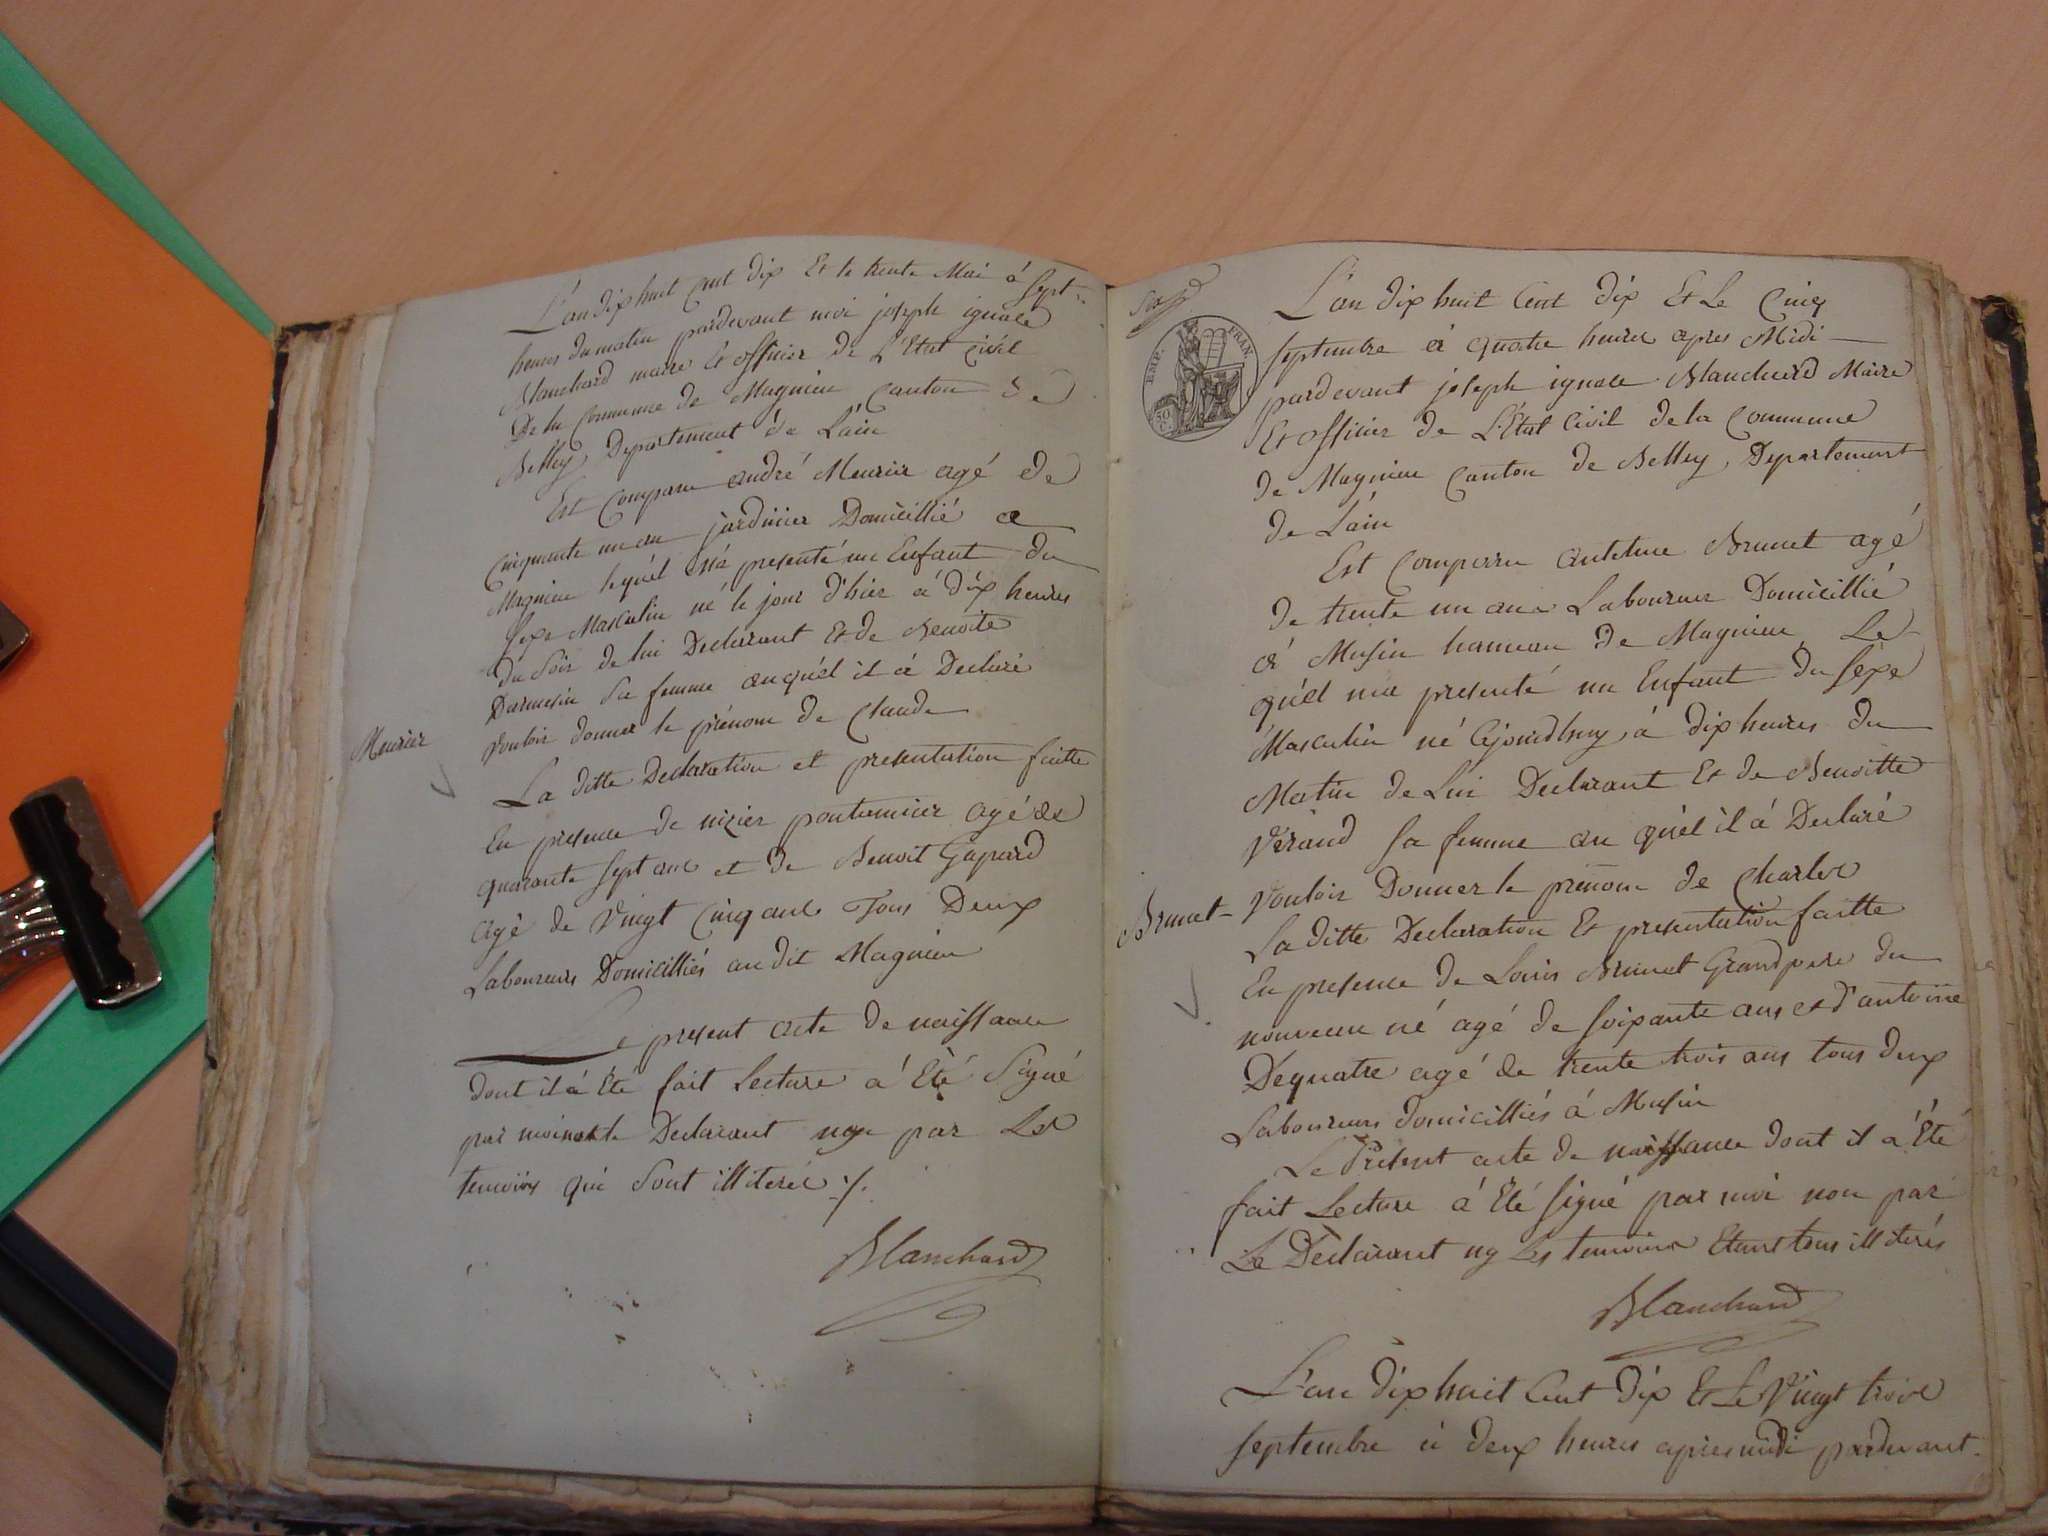 L'an dix huit cent dix Et le trente Mai à Sept
heures du matin pardevant moi joseph ignace
Blanchard maire Et officier de L'Etat Civil
De la Commune de Magnieu Canton de
Belley, Departement de L'ain
Est Comparu andré Meurier agé de
Cinquante un an jardinier Domicillié a
Magnieu lequél m'a presenté un Enfant du
sexe Masculin né le jour d'hier á dix heures
du Soir de lui Declarant Et de Benoite
sa femme auquél il á Declaré
vouloir donner le prénom de Claude
Meurier
La ditte Declaration et presentation faitte
En presence de nizier agé de
quarante sept ans et de Benoit
agé de Vingt Cinq ans Tous Deux
Laboureurs Domicilliés au dit Magnieu
Le present acte de naissance
dont il á Eté fait Lecture á Eté Signé
par moi Declarant non par Les
temoins qui Sont illiterés ./.
Blanchard
EMP. FRAN.
50 C.
L'an dix huit Cent dix Et Le Cinq
septembre á quatre heures apres Midi
pardevant joseph ignace Blanchard Maire
Et officier de L'Etat Civil de la Commune
de Magnieu Canton de Belley, Departement
de L'ain
Est Comparu antelme Brunet agé
de trente un ans Laboureur Domicillié
á Musin hameau de Magnieu Le
quél m'a presenté un Enfant du sexe
Masculin né á dix heures du
Matin de Lui Declarant Et de Benoitte
Vérand sa femme au quél il á Declaré
Vouloir Donner le prénom de Charles
Brunet
La ditte Declaration Et presentation faitte
En presence de Louis Brunet Grandpere du
nouveau né agé de soixante ans et d'antoine
Dequatre agé de trente trois ans tous deux
Laboureurs domicilliés á Musin
Le Présent acte de naissance dont il á Eté
fait Lecture á Eté signé par moi non par
Le Declarant ny Les temoins Etant tous illiterés
Blanchard
L'an dix huit Cent dix Et Le Vingt trois
septembre á deux heures apres midi pardevant